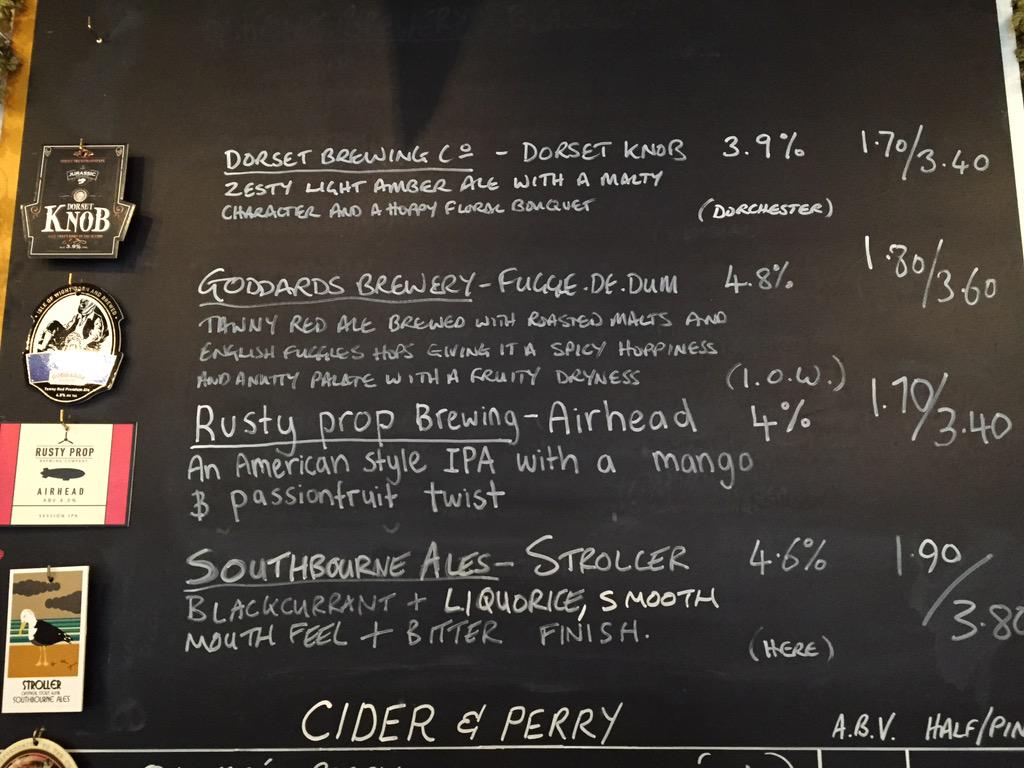 DORSET BREWING Cº - DORSET KNOB 3.9% 1.70/3.40
ZESTY LIGHT AMBER ALE WITH A MALTY
CHARACTER AND A HOPPY FLORAL BOUQUET (DORCHESTER)
JURASSIC
DORSET
KNOB
3.9%
GODDARDS BREWERY - FUGGLE.DE.DUM 4.8% 1.80/3.60
TAWNY RED ALE BREWED WITH ROASTED MALTS AND
ENGLISH FUGGLES HOPS GIVING IT A SPICY HOPPINESS
AND A NUTTY PALATE WITH A FRUITY DRYNESS (I.O.W.)
ISLE OF WIGHT BORN AND BREWED
Tawny Red Premium Ale
4.8%
Rusty prop Brewing - Airhead 4% 1.70/3.40
An American style IPA with a mango
& passionfruit twist
RUSTY PROP
BREWING COMPANY
AIRHEAD
ABV 4.0%
SESSION IPA
SOUTHBOURNE ALES - STROLLER 4.6% 1.90/3.80
BLACKCURRANT + LIQUORICE, SMOOTH
MOUTH FEEL + BITTER FINISH. (HERE)
STROLLER
SOUTHBOURNE ALES
CIDER & PERRY A.B.V. HALF/PIN